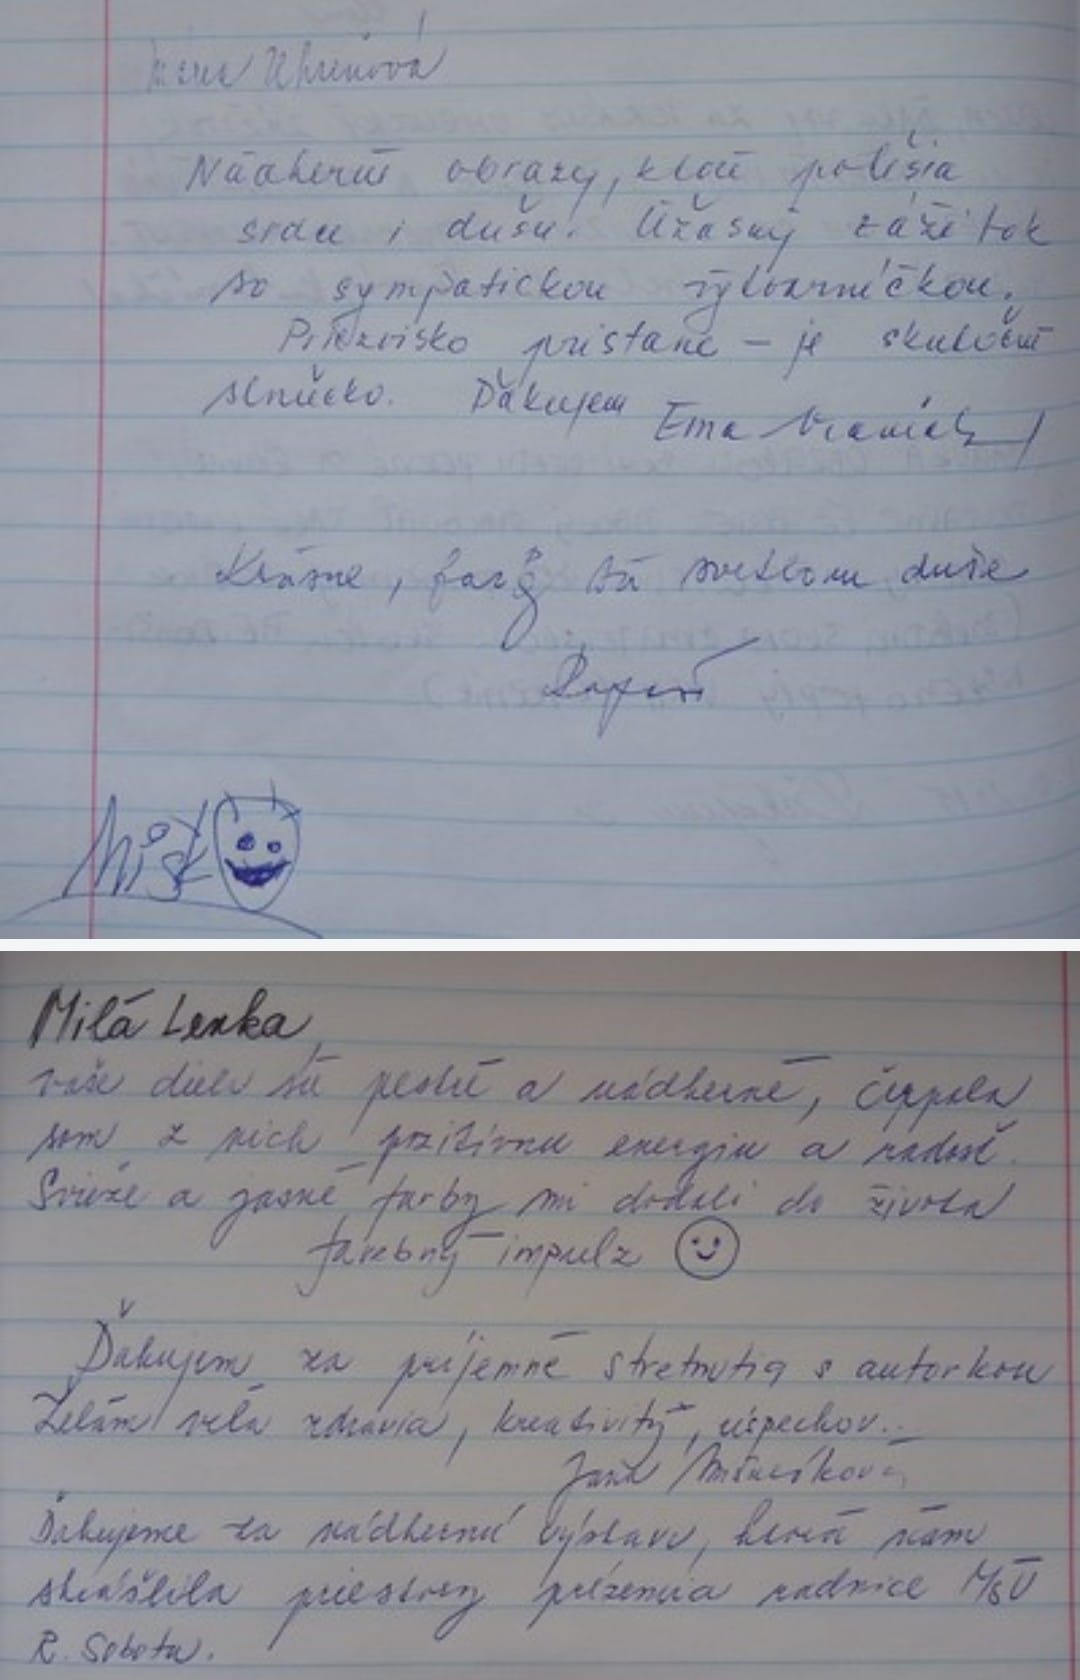 Nádherné obrazy, ktoré potešia
srdce i dušu. Úžasný zážitok
so sympatickou výtvarníčkou.
Priezvisko pristane – je skutočné
slniečko. Ďakujem Ema
Krásne, farby sú svetlom duše
Milá Lenka,
vaše diela sú pestré a nádherné, čerpala
som z nich pozitívnu energiu a radosť.
Svieže a jasné farby mi dodali do života
farebný impulz
Ďakujem za príjemné stretnutia s autorkou
Želám veľa zdravia, kreativity, úspechov..
Jana
Ďakujeme za nádhernú výstavu, ktorá nám
skrášlila priestory prízemia radnice MsÚ
R. Sobota.